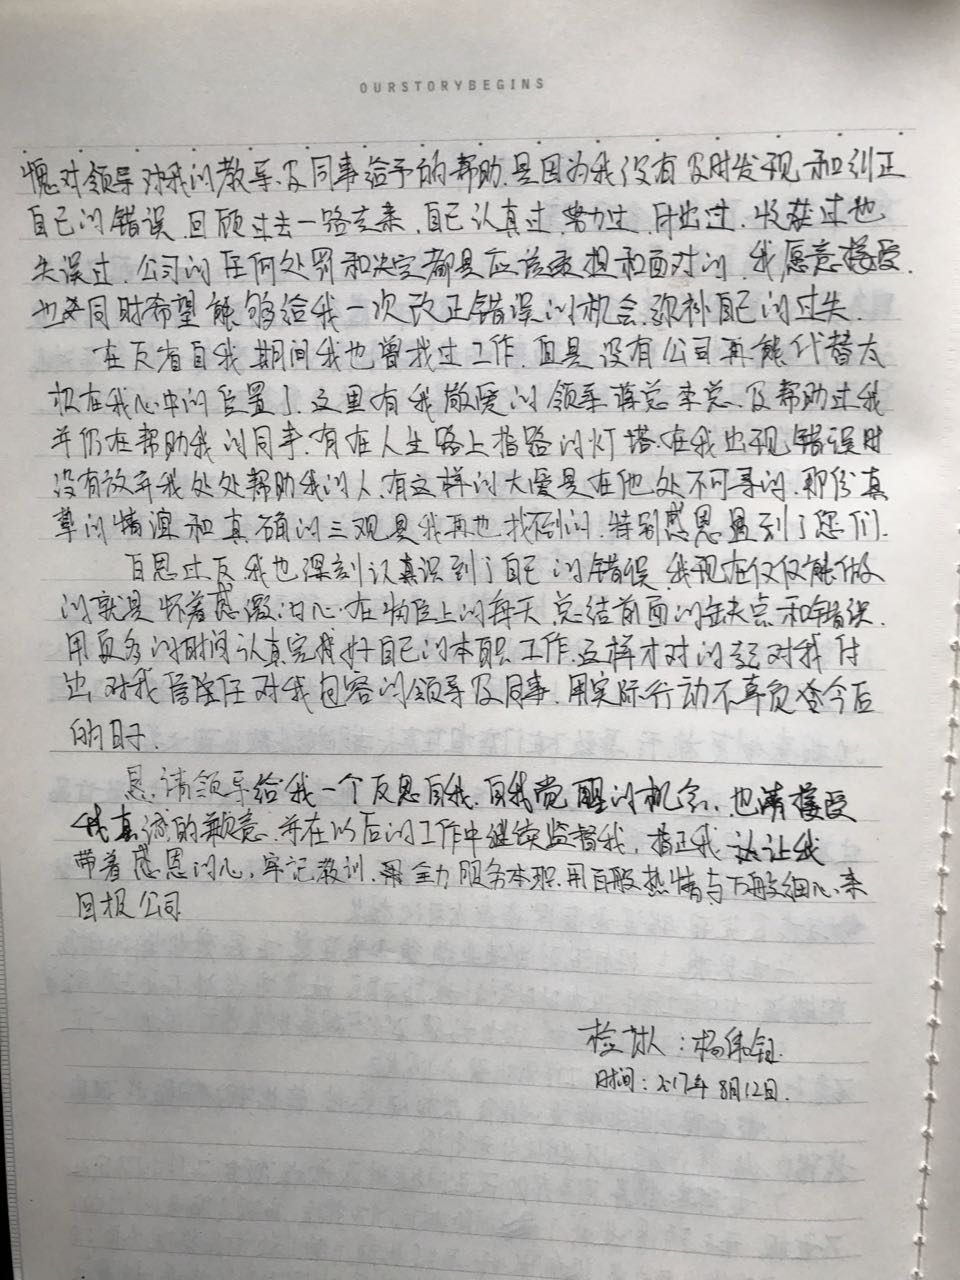 OURSTORYBEGINS
愧对领导对我的教导及同事给予的帮助.是因为我没有及时发现和纠正
自己的错误.回顾过去一路走来.自己认真过努力过.付出过.收获过也
失误过.公司的任何处罚和决定都是应该承担和面对的.我愿意接受.
也同时希望能够给我一次改正错误的机会.弥补自己的过失.
在反省自我期间我也曾找过工作.但是没有公司再能代替太
在我心中的位置了.这里有我敬爱的领导蒋总李总.及帮助过我
并仍在帮助我的同事.有在人生路上指路的灯塔.在我出现错误时
没有放弃我处处帮助我的人.有这样的大爱是在他处不可寻的.那份真
挚的情谊和真确的三观是我再也找不到的.特别感恩遇到了您们.
自思过反我也深刻认真识到了自己的错误.我现在仅仅能做
的就是怀着感激的心.在岗位上的每天总结前面的缺点和错误.
用更多的时间认真完成好自己的本职工作.这样才对的起对我付
出对我信任对我包容的领导及同事.用实际行动不辜负今后
的日子.
恳请领导给我一个反思自我.自我觉醒的机会.也请接受
我真诚的歉意.并在以后的工作中继续监督我,指正我.让我
带着感恩的心,牢记教训.全力服务本职.用百般热情与万般细心.来
回报公司
检讨人:杨伟钰.
时间:2017年8月12日.